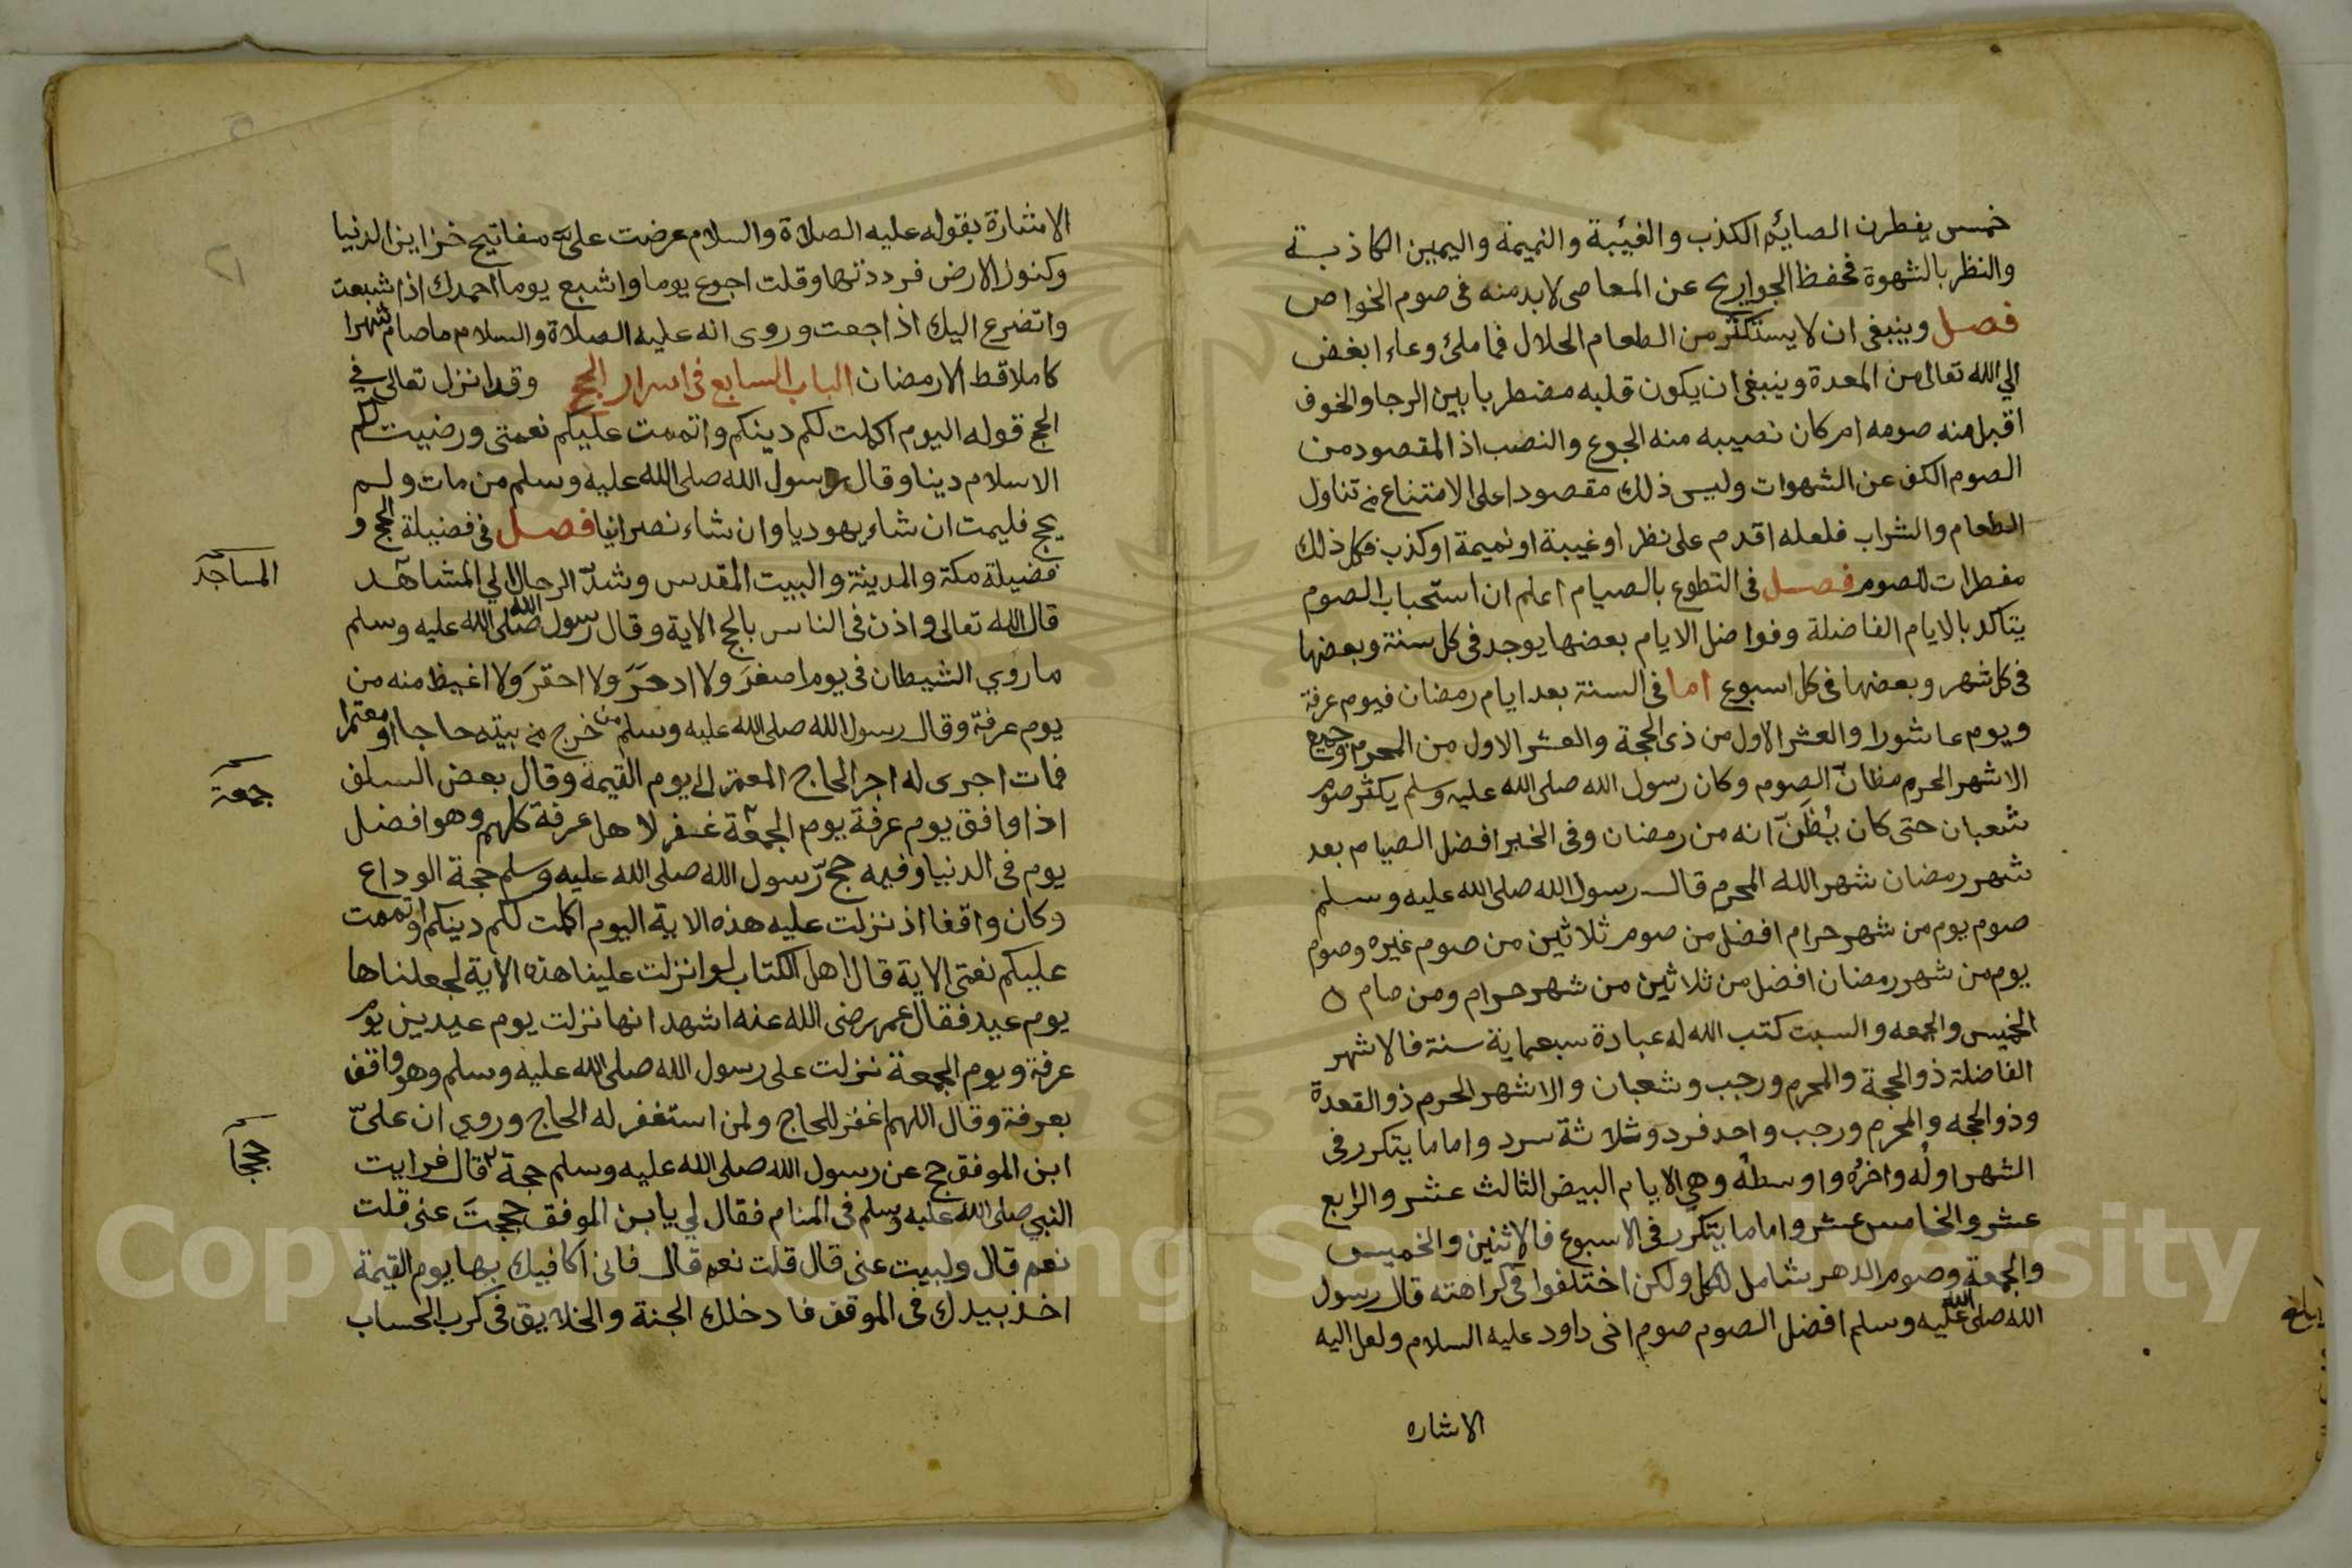 خمس يفطرن الصايم الكذب والغيبة والنميمة واليمين الكاذبة
والنظر بالشهوة فحفظ الجوارح عن المعاصى لا بد منه فى صوم الخواص
فصل وينبغى ان لا يستكثر من الطعام الحلال فما ملئ وعاء ابغض
الي الله تعالى من المعدة وينبغى ان يكون قلبه مضطربا بين الرجا والخوف
اقبل منه صومه ام كان نصيبه منه الجوع والنصب اذ المقصود من
الصوم الكف عن الشهوات وليس ذلك مقصودا على الامتناع من تناول
الطعام والشراب فلعله اقدم على نظر او غيبة او نميمة او كذب فكل ذلك
مفطرات للصوم فصل فى التطوع بالصيام اعلم ان استحباب الصوم
يتاكد بالايام الفاضلة وفواضل الايام بعضها يوجد فى كل سنة وبعضها
فى كل شهر وبعضها فى كل اسبوع اما فى السنة بعد ايام رمضان فيوم عرفة
ويوم عاشورا والعشر الاول من ذى الحجة والعشر الاول من المحرم وجميع
الاشهر الحرم مظانّ الصوم وكان رسول الله صلى الله عليه وسلم يكثر صوم
شعبان حتى كان يُظَنّ انه من رمضان وفى الخبر افضل الصيام بعد
شهر رمضان شهر الله المحرم قال رسول الله صلى الله عليه وسلم
صوم يوم من شهر حرام افضل من صوم ثلاثين من صوم غيره وصوم
يوم من شهر رمضان افضل من ثلاثين من شهر حرام ومن صام
الخميس والجمعه والسبت كتب الله له عبادة سبعماية سنة فالاشهر
الفاضلة ذوالحجة والمحرم ورجب وشعبان والاشهر الحرم ذوالقعدة
وذوالحجه والمحرم ورجب واحد فرد وثلاثة سرد واما ما يتكرر فى
الشهر اولُه واخرُه واوسطُه وهى الايام البيض الثالث عشر والرابع
عشر والخامس عشر واما ما يتكرر فى الاسبوع فالاثنين والخميس
والجمعة وصوم الدهر شامل لكل ولكن اختلفوا فى كراهته قال رسول
الله صلى الله عليه وسلم افضل الصوم صوم اخى داود عليه السلام ولعل اليه
الاشاره
الاشارة بقوله عليه الصلاة والسلام عرضت علىّ مفاتيح خزاين الدنيا
وكنوز الارض فرددتها وقلت اجوع يوما واشبع يوما احمدك اذا شبعت
واتضرع اليك اذا جعت وروى انه عليه الصلاة والسلام ما صام شهرا
كاملا قط الا رمضان الباب السابع فى اسرار الحج وقد انزل تعالى في
الحج قوله اليوم اكملت لكم دينكم واتممت عليكم نعمتى ورضيت لكم
الاسلام دينا وقال رسول الله صلى الله عليه وسلم من مات ولم
يحج فليمت ان شاء يهوديا وان شاء نصرانيا فصل فى فضيلة الحج و
فضيلة مكة والمدينة والبيت المقدس وشدّ الرحال الي المشاهد
المساجد
قال الله تعالى واذن فى الناس بالحج الاية وقال رسول الله صلى الله عليه وسلم
ما روي الشيطان فى يوم اصغرَ ولا ادحَرَ ولا احقرَ ولا اغيظ منه من
يوم عرفة وقال رسول الله صلى الله عليه وسلم من خرج من بيته حاجا او معتمرا
فمات اجرى له اجر الحاج المعتمر الى يوم القيمة وقال بعض السلف
جمعة
اذا وافق يوم عرفة يوم الجمعة غفر لاهل عرفة كلهم وهو افضل
يوم فى الدنيا وفيه حج رسول الله صلى الله عليه وسلم حجة الوداع
وكان واقفا اذ نزلت عليه هذه الاية اليوم اكملت لكم دينكم واتممت
عليكم نعمتى الاية قال اهل الكتاب لو انزلت علينا هذه الاية لجعلناها
يوم عيد فقال عمر رضى الله عنه اشهد انها نزلت يوم عيدين يوم
عرفة ويوم الجمعة نزلت على رسول الله صلى الله عليه وسلم وهو واقف
بعرفة وقال اللهم اغفر للحاج ولمن استغفر له الحاج وروي ان علىّ
ابن الموفق حج عن رسول الله صلى الله عليه وسلم حجة قال فرايت
حججا
النبي صلى الله عليه وسلم فى المنام فقال لي يا بن الموفق حججتَ عنى قلت
نعم قال ولبيت عنى قال قلت نعم قال فانى اكافيك بها يوم القيمة
اخذ بيدك فى الموقف فادخلك الجنة والخلايق فى كرب الحساب
Copyright © King Saud University
1957